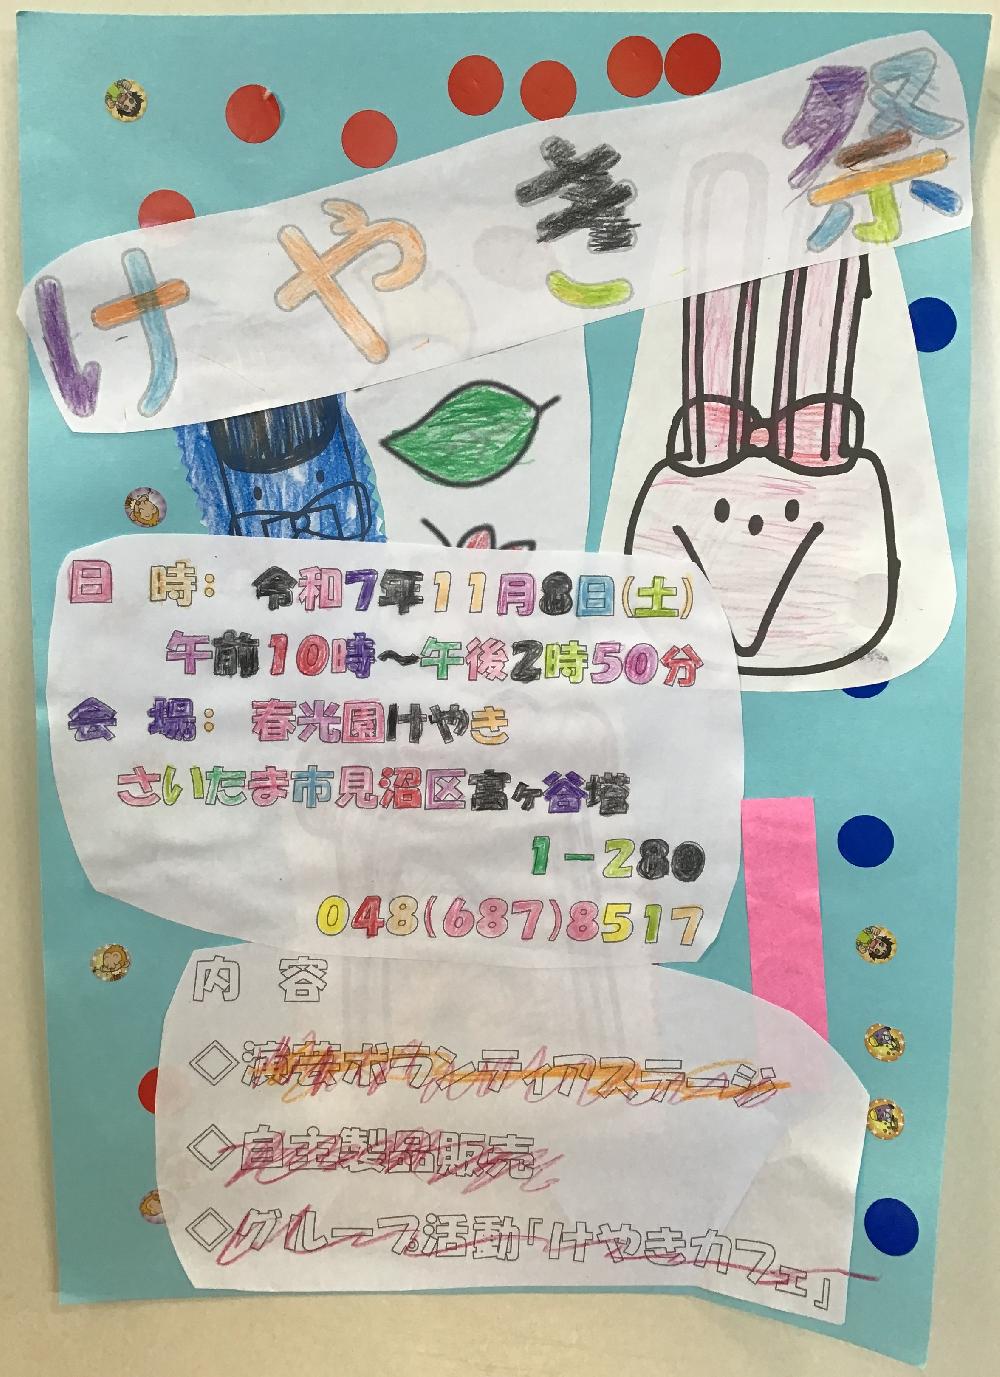 けやき祭
日 時： 令和7年11月8日(土)
午前10時～午後2時50分
会 場： 春光園けやき
さいたま市見沼区宮ヶ谷塔
1－280
048(687)8517
内 容
◇演芸ボランティアステージ
◇自主製品販売
◇グループ活動「けやきカフェ」